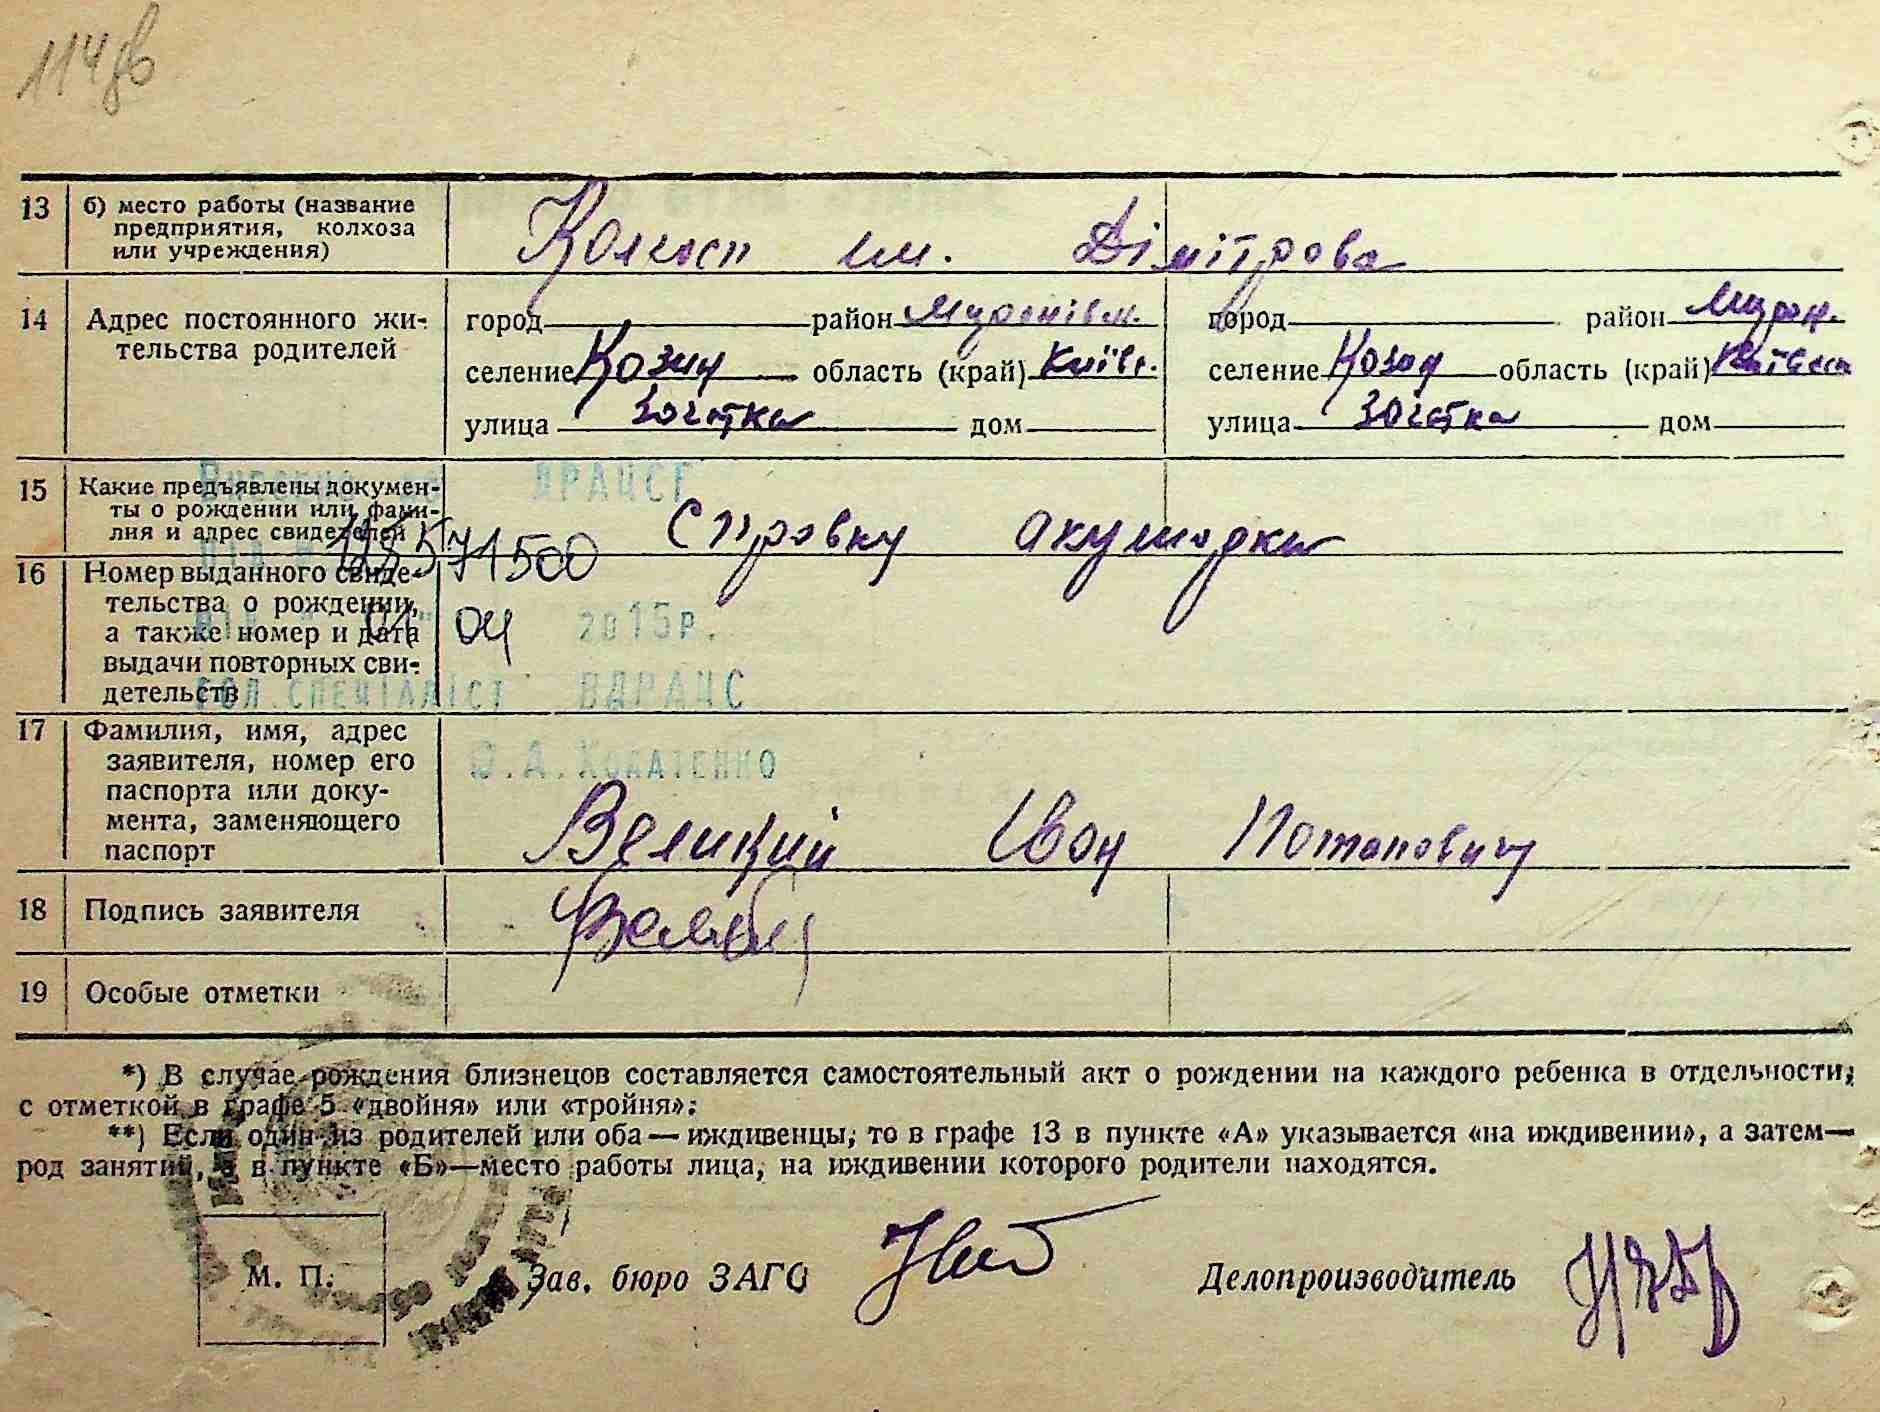 114
13 б) место работы (название предприятия, колхоза или учреждения) Колгосп им. Дімітрова
14 Адрес постоянного жительства родителей
город район Миронівк. город район Мирон.
селение Козин область (край) Київс. селение Козин область (край) Київськ
улица дом улица дом
15 Какие предъявлены документы о рождении или фамилия и адрес свидетелей Справку акушерки
Внесено до ДРАЦСГ
571500
16 Номер выданного свидетельства о рождении, а также номер и дата выдачи повторных свидетельств
04 2015р.
Гол.спеціаліст ВДРАЦС
17 Фамилия, имя, адрес заявителя, номер его паспорта или документа, заменяющего паспорт
Великий Іван Потапович
18 Подпись заявителя
19 Особые отметки
*) В случае рождения близнецов составляется самостоятельный акт о рождении на каждого ребенка в отдельности,
с отметкой в графе 5 «двойня» или «тройня»;
**) Если один из родителей или оба — иждивенцы, то в графе 13 в пункте «А» указывается «на иждивении», а затем—
род занятий, а в пункте «Б»—место работы лица, на иждивении которого родители находятся.
М. П. Зав. бюро ЗАГС Делопроизводитель